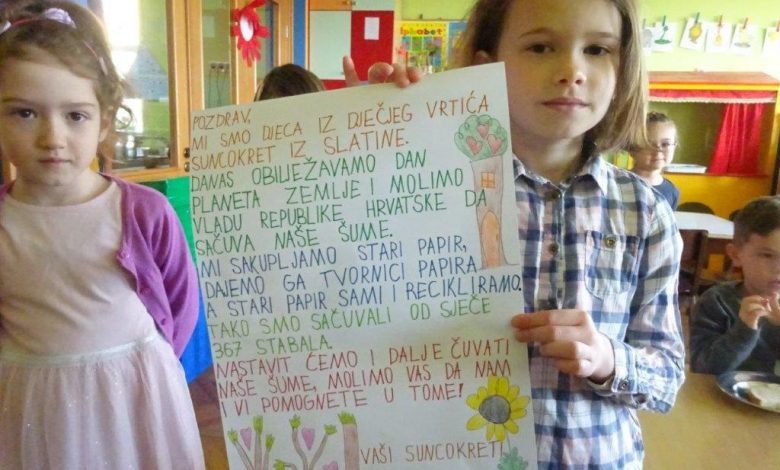 Alphabet
POZDRAV,
MI SMO DJECA IZ DJEČJEG VRTIĆA
SUNCOKRET IZ SLATINE.
DANAS OBILJEŽAVAMO DAN
PLANETA ZEMLJE I MOLIMO
VLADU REPUBLIKE HRVATSKE DA
SAČUVA NAŠE ŠUME.
MI SAKUPLJAMO STARI PAPIR,
DAJEMO GA TVORNICI PAPIRA
A STARI PAPIR SAMI I RECIKLIRAMO.
TAKO SMO SAČUVALI OD SJEČE
367 STABALA.
NASTAVIT ĆEMO I DALJE ČUVATI
NAŠE ŠUME, MOLIMO VAS DA NAM
I VI POMOGNETE U TOME!
VAŠI SUNCOKRETI